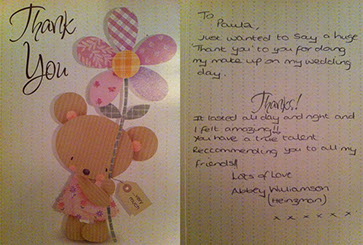 Thank
You
very
much
To
Paula,
Just wanted to say a huge
'Thank you' to you for doing
my make up on my wedding
day.
Thanks!
It lasted all day and night and
I felt amazing!!
You have a true talent.
Reccommending you to all my
friends!!
Lots of Love
Abbey Williamson
(Heinzman)
x x x x x x